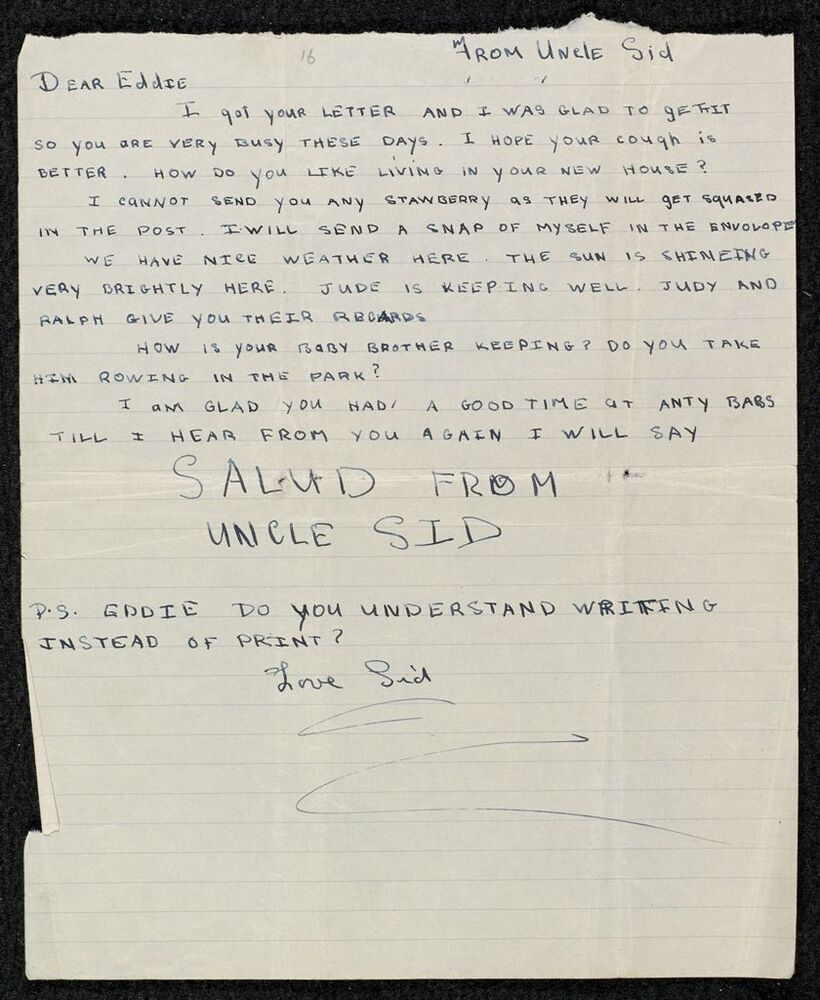 16
FROM UNCLE Sid
DEAR EDDIE
I got YOUR LETTER AND I WAS GLAD TO GETIT
SO YOU ARE VERY BUSY THESE DAYS. I HOPE YOUR COUGH IS
BETTER. HOW DO YOU LIKE LIVING IN YOUR NEW HOUSE?
I CANNOT SEND YOU ANY STAWBERRY AS THEY WILL GET SQUASED
IN THE POST. I WILL SEND A SNAP OF MYSELF IN THE ENVOLOPE
WE HAVE NICE WEATHER HERE. THE SUN IS SHINEING
VERY BRIGHTLY HERE. JUDE IS KEEPING WELL. JUDY AND
RALPH GIVE YOU THEIR REGARDS
HOW IS YOUR BABY BROTHER KEEPING? DO YOU TAKE
HIM ROWING IN THE PARK?
I AM GLAD YOU HAD A GOOD TIME AT ANTY BABS
TILL I HEAR FROM YOU AGAIN I WILL SAY
SALUD FROM
UNCLE SID
P.S. EDDIE DO YOU UNDERSTAND WRITING
INSTEAD OF PRINT?
Love Sid